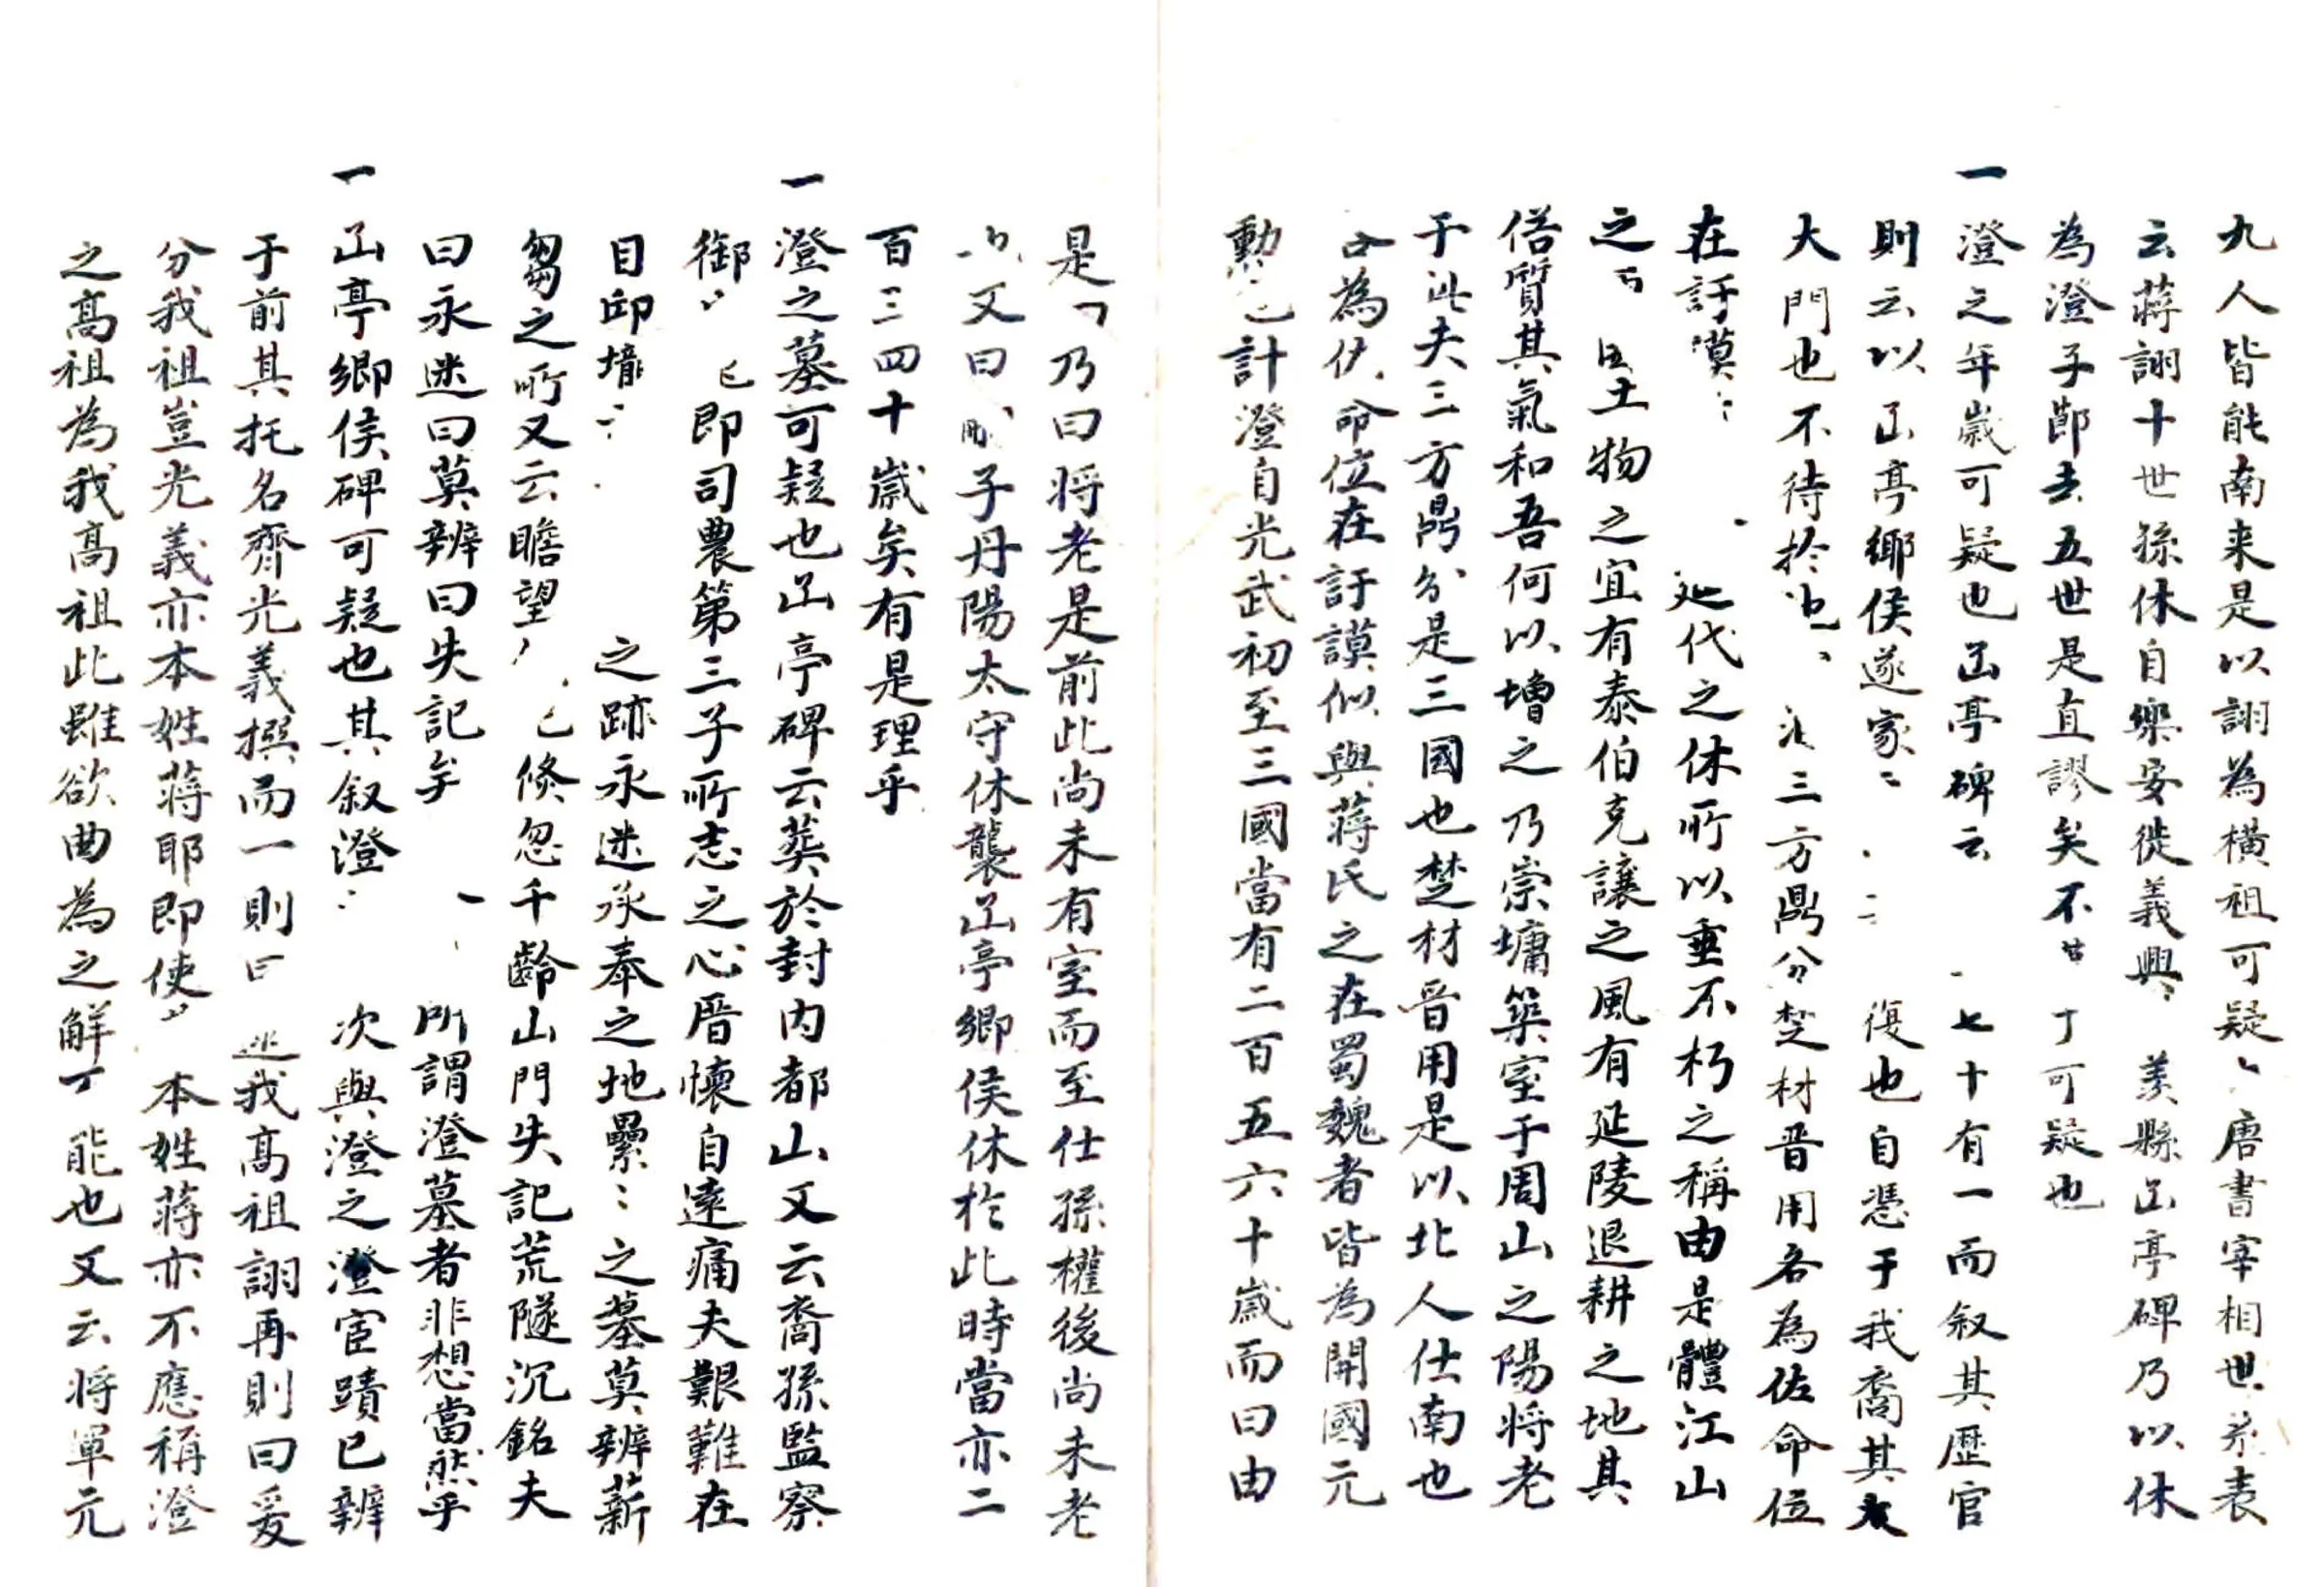 九人皆能南来是以詡為横祖可疑唐書宰相世系表
云蔣詡十世孫休自樂安徙義興羨縣凾亭碑乃以休
為澄子鄙去五世是直謬矣不可疑也
一澄之年歲可疑也凾亭碑云七十有一而叙其歷官
則云以凾亭鄉侯遂家復也自憑于我裔其大
大門也不待於三方鼎分楚材晉用各為佐命位
在訏謨代之休所以垂不朽之稱由是體江山
之土物之宜有泰伯克讓之風有延陵退耕之地其
俗質其氣和吾何以增之乃崇墉築室于周山之陽将老
于此夫三方鼎分是三國也楚材晉用是以北人仕南也
為佐命位在訏謨似與蔣氏之在蜀魏者皆為開國元
勳計澄自光武初至三國當有二百五六十歲而曰由
是乃曰将老是前此尚未有室而至仕孫權後尚未老
又曰子丹陽太守休襲凾亭鄉侯休於此時當亦二
百三四十歲矣有是理乎
一澄之墓可疑也凾亭碑云葬於封内都山又云裔孫監察
御即司農第三子所志之心厝懷自遠痛夫艱難在
目邱壠之跡永迷承奉之地纍之墓莫辨薪
芻之所又云瞻望倏忽千齡山門失記荒隧沉銘夫
曰永迷曰莫辨曰失記矣所謂澄墓者非想當然乎
一凾亭鄉侯碑可疑也其叙澄次與澄之澄宦蹟已辨
于前其托名齊光義撰而一則曰我高祖詡再則曰爰
分我祖豈光義亦本姓蔣耶即使本姓蔣亦不應稱澄
之高祖為我高祖此雖欲曲為之解能也又云将軍元